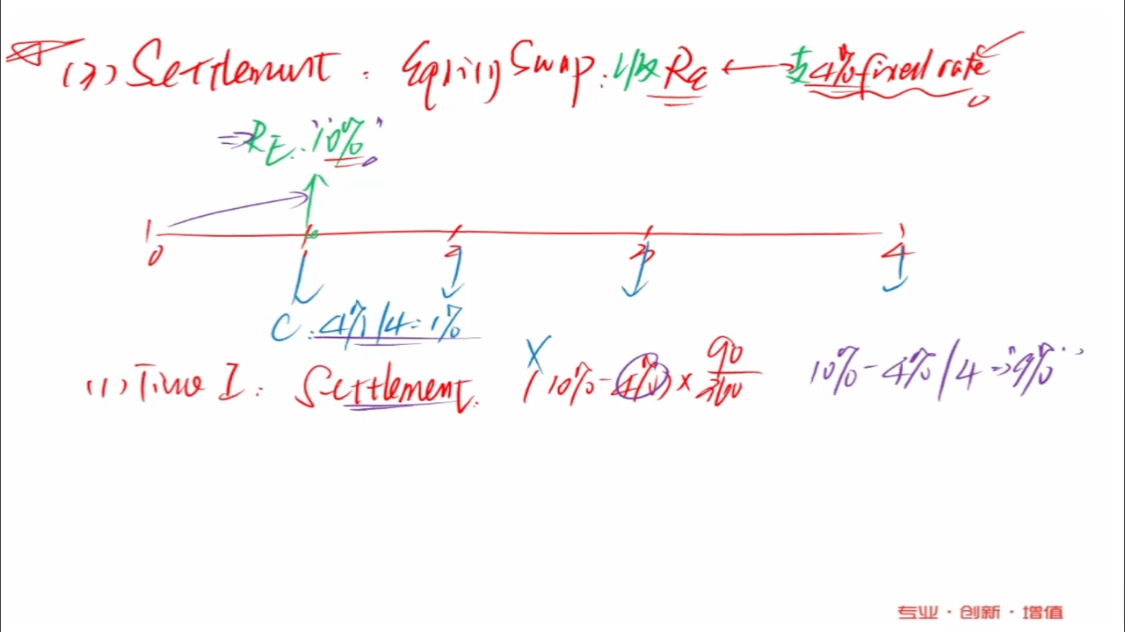 (3) Settlement : Equity Swap : 收 Re ← 支 4% fixed rate
⇒ RE : "10%"
0 1 2 3 4
C : 4%/4 = 1%
(1) Time I : Settlement : X (10% - 4%) × 90/360 10% - 4%/4 ⇒ "9%"
专业 · 创新 · 增值